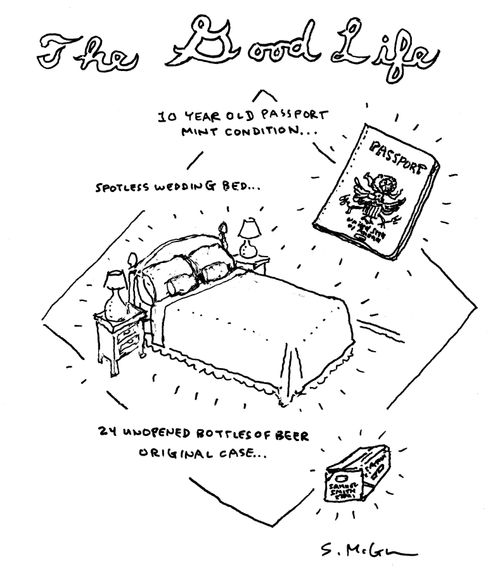 The Good Life
10 YEAR OLD PASSPORT
MINT CONDITION...
PASSPORT
SPOTLESS WEDDING BED...
24 UNOPENED BOTTLES OF BEER
ORIGINAL CASE...
SAMUEL
SMITH